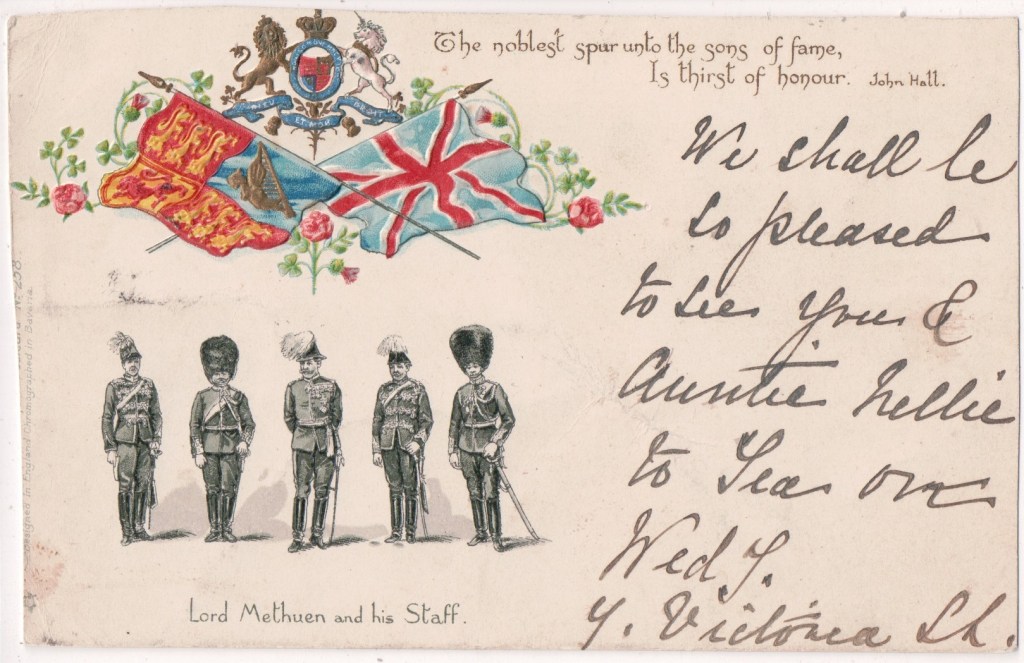 The noblest spur unto the sons of fame,
Is thirst of honour. John Hall.
DIEU
ET MON
DROIT
We shall be
so pleased
to see you &
Auntie Nellie
to Tea on
Wed. 7.
7. Victoria
Lord Methuen and his Staff.
258.
Designed in England Chromographed in Bavaria.